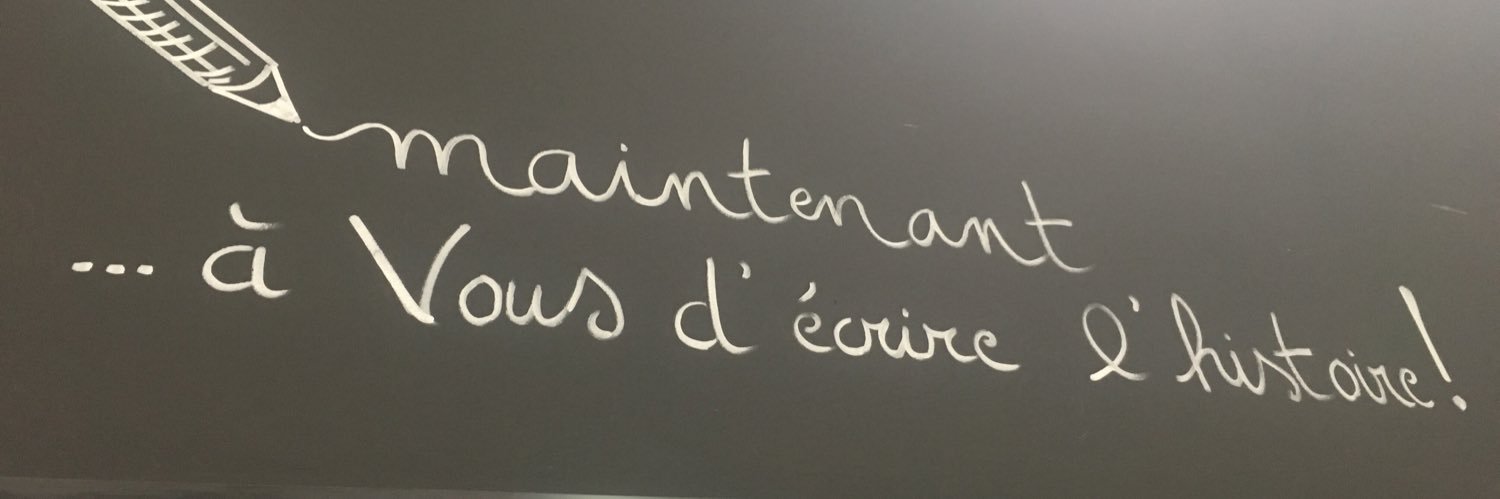 maintenant
... à Vous d'écrire l'histoire!